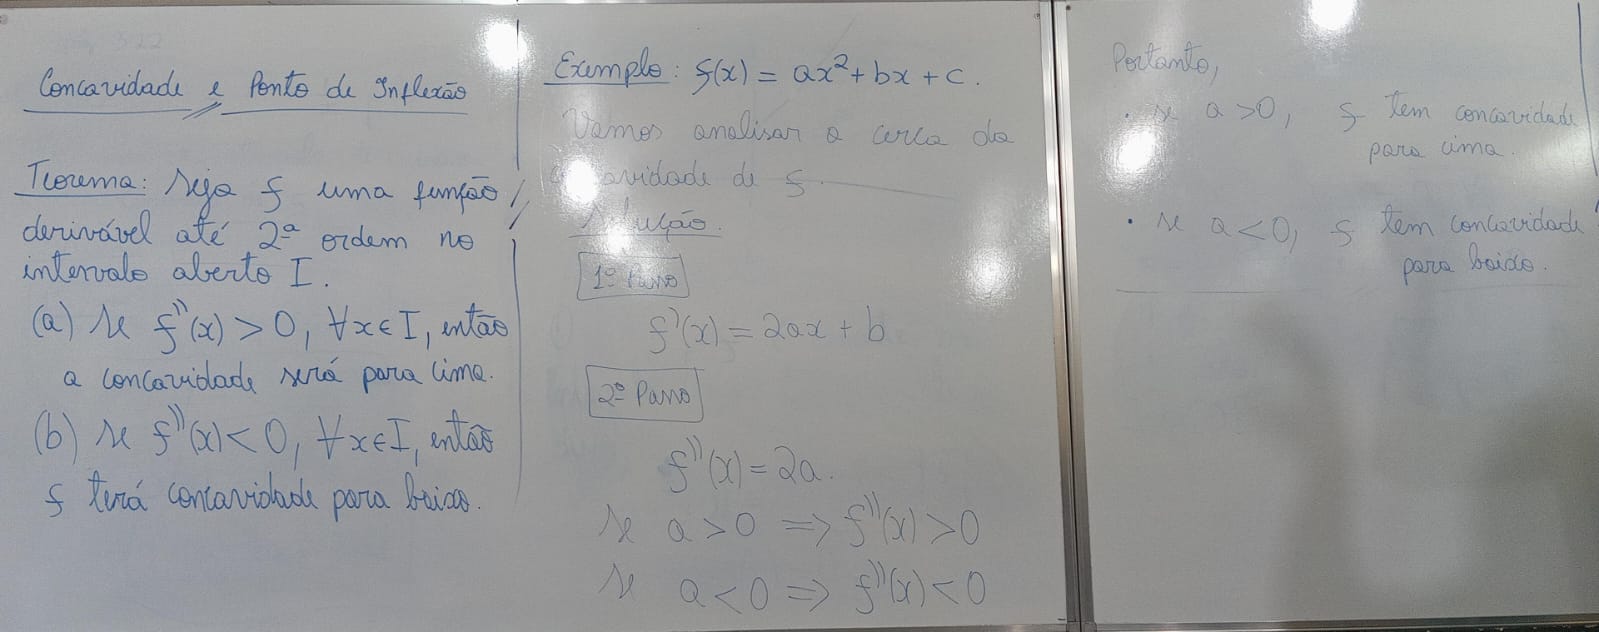 Concavidade e Ponto de Inflexão
Teorema: Seja f uma função
derivável até 2ª ordem no
intervalo aberto I.
(a) Se f''(x) > 0, ∀x∈I, então
a concavidade será para cima.
(b) Se f''(x) < 0, ∀x∈I, então
f terá concavidade para baixo.
Exemplo: f(x) = ax² + bx + c.
Vamos analisar a cerca da
concavidade de f.
Solução.
1º Passo
f'(x) = 2ax + b
2º Passo
f''(x) = 2a.
Se a > 0 => f''(x) > 0
Se a < 0 => f''(x) < 0
Portanto,
• se a > 0, f tem concavidade
para cima.
• se a < 0, f tem concavidade
para baixo.